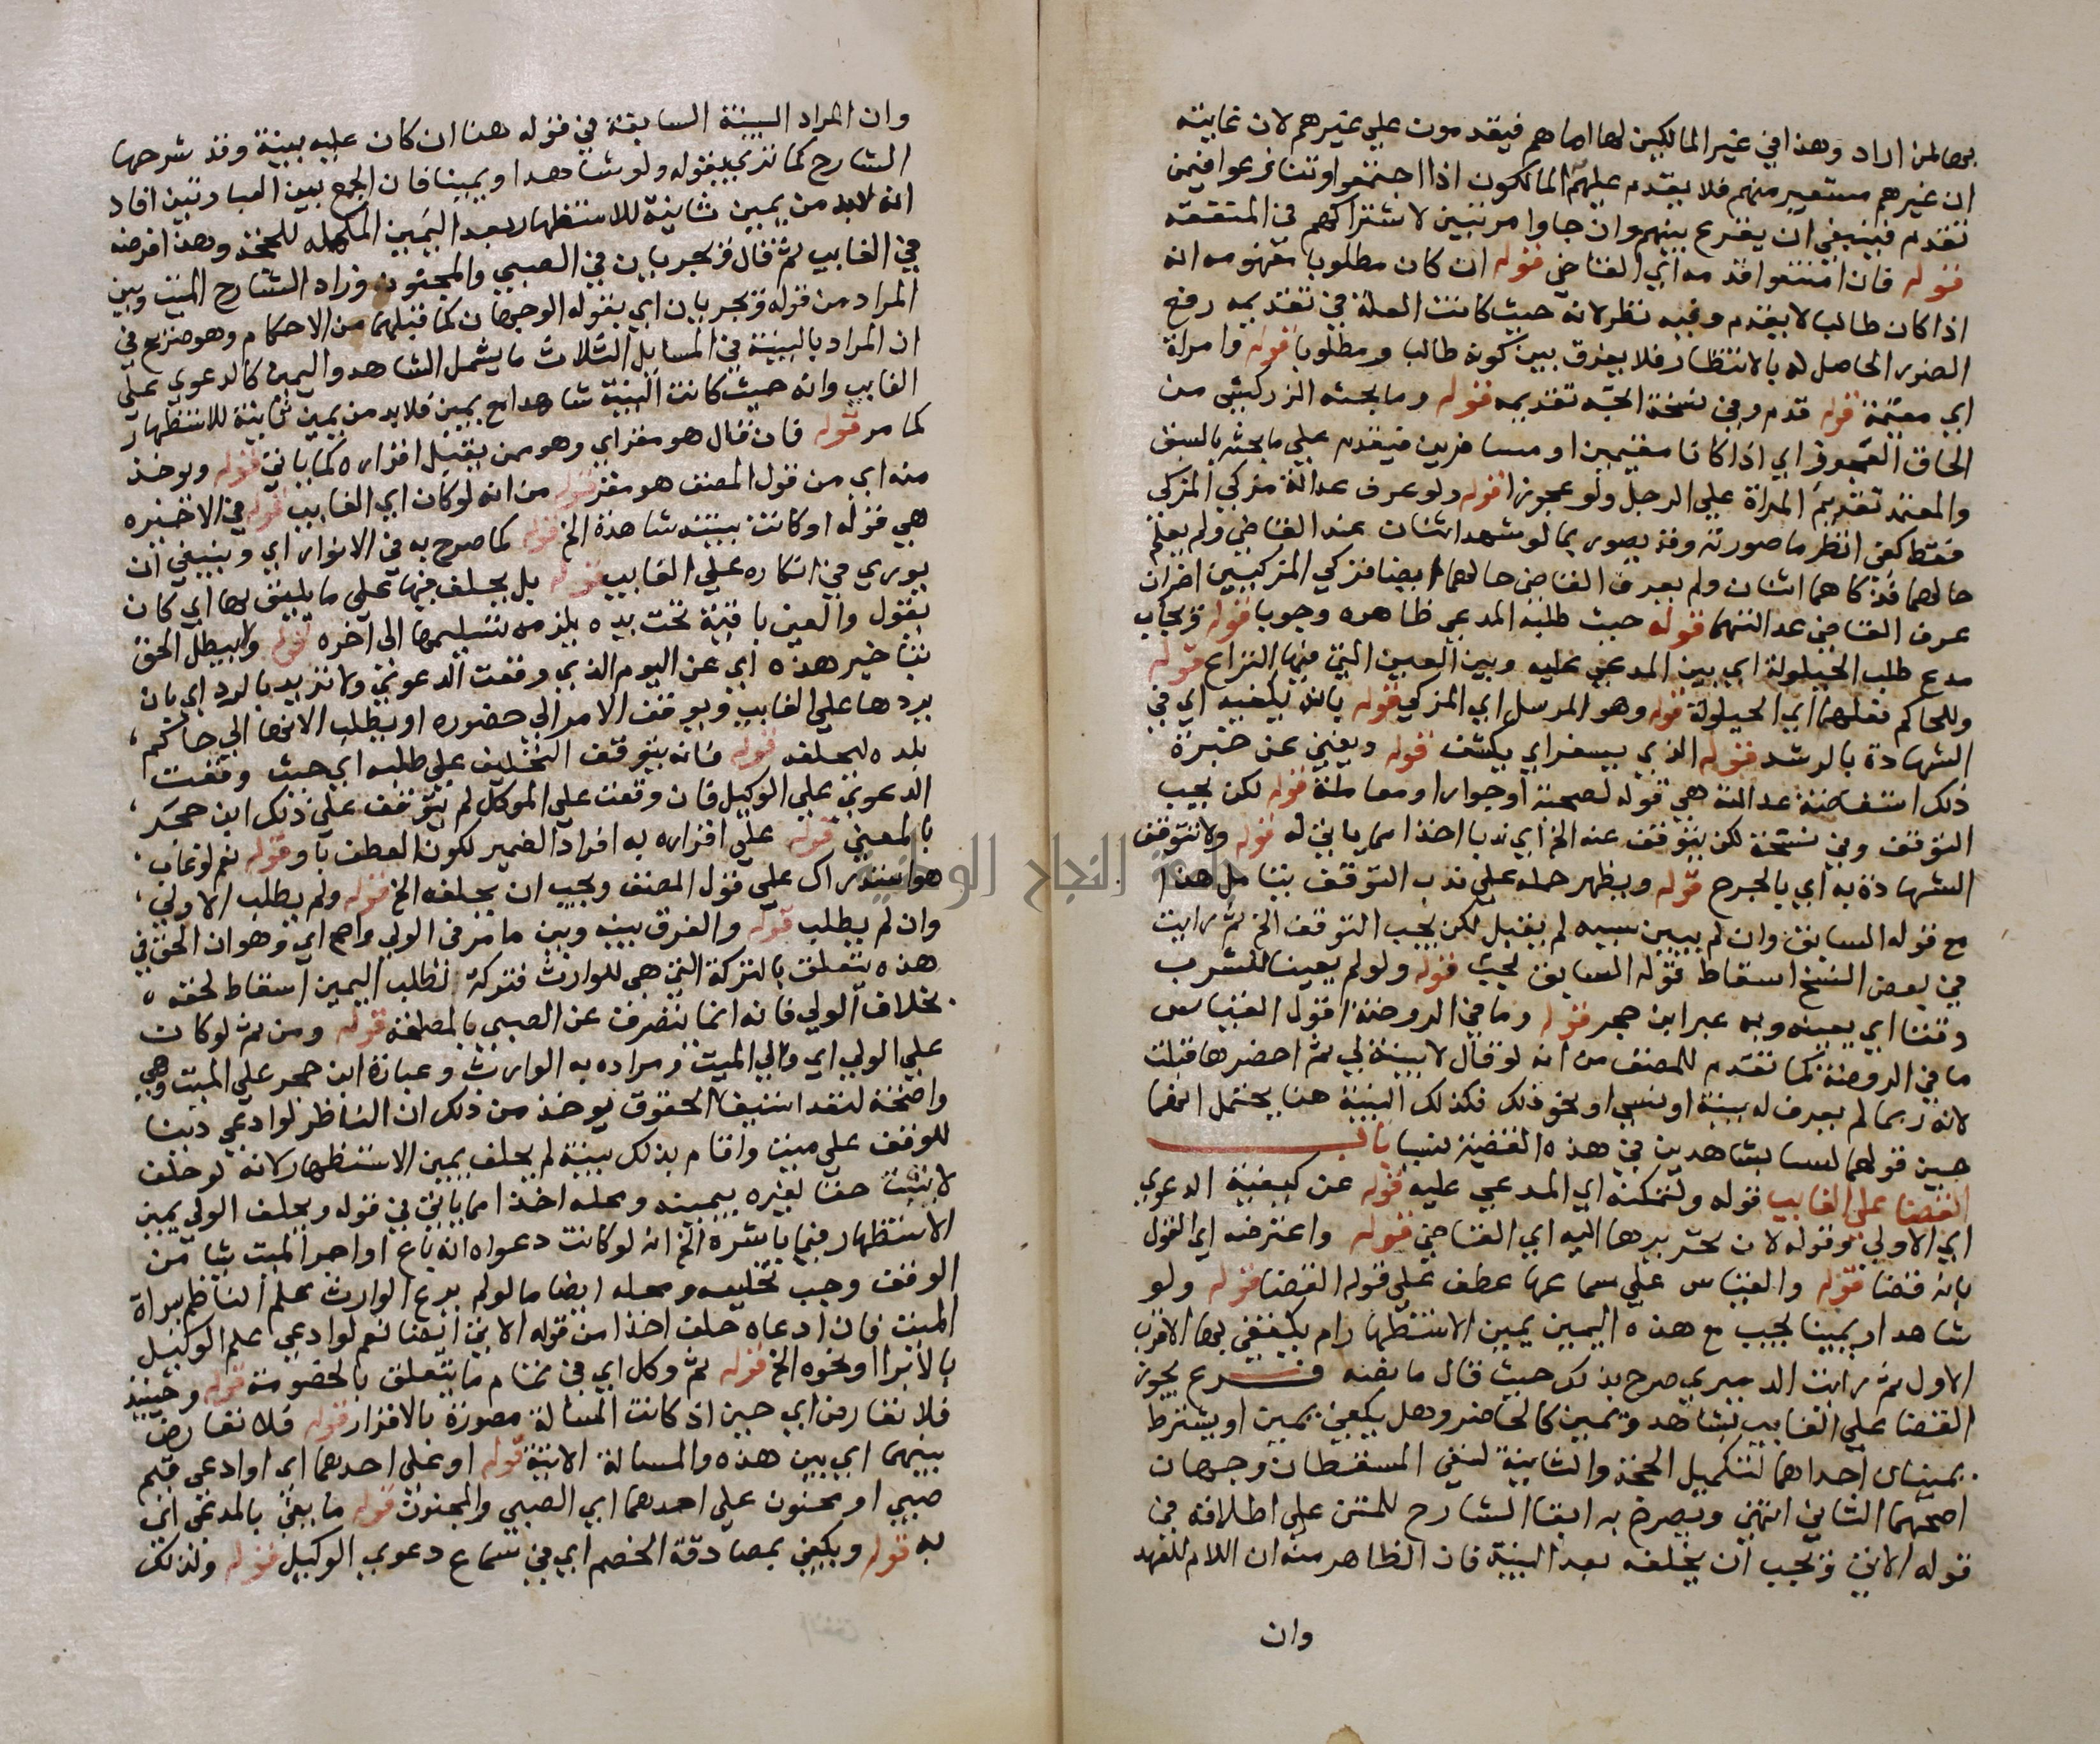 بها لمن اراد وهذا في غير المالكين لها اما هم فيقدمون علي غيرهم لان غايته
ان غيرهم مستعير منهم فلا يقدم عليهم المالكون اذا اجتمعوا وتنازعوا فيمن
تقدم فينبغي ان يقرع بينهم وان جاوا مرتبين لاشتراكهم في المنفعة
قوله فان امتنعوا قدمه اي القاضي قوله ان كان مطلوبا مفهومه انه
اذا كان طالبا لا يقدم وفيه نظر لانه حيث كانت العلة في تقديمه رفع
الضرر الحاصل له بالانتظار فلا يفرق بين كونه طالبا ومطلوبا قوله وامراة
اي مقيمة قوله قدم وفي نسخة الحة تقديمه قوله وما بحثه الزركشي من
الحاق العجوز اي اذا كانا مقيمين او مسافرين فيقدم علي ما بحثه بالسبق
والمعتمد تقديم المراة علي الرجل ولو عجوزا قوله ولو عرف عدالة مزكي المزكي
فقط كفي انظر ما صورته وقد يصور بما لو شهد اثنان عند القاضي ولم يعلم
حالهما فزكاهما اثنان ولم يعرف القاضي حالهما ايضا فزكي المزكيين اخران
عرف القاضي عدالتهما قوله حيث طلبه المدعي ظاهره وجوبا قوله ويجاب
مدع طلب الحيلولة اي بين المدعي عليه وبين العين التي فيها النزاع قوله
وللحاكم فعلهما اي الحيلولة قوله وهو المرسل اي المزكي قوله بانه يكفيه اي في
الشهادة بالرشد قوله الذي يسفر اي يكشف قوله ويغني عن خبرة
ذلك استفاضة عدالته هي قوله لصحبة او جوار او معاملة قوله لكن يجب
التوقف وفي نسخة لكن يتوقف عنه الخ اي ندبا اخذا مما ياتي له قوله ولا تتوقف
الشهادة به اي بالجرح قوله ويظهر حمله علي ندب التوقف بتامل هذا
مع قوله السابق وان لم يبين سببه لم يقبل لكن يجب التوقف الخ ثم رايت
في بعض النسخ اسقاط قوله السابق يجب قوله ولو لم يعينا للشرب
وقتا اي يعينه وبه عبر ابن حجر قوله وما في الروضة اقول القياس
ما في الروضة كما تقدم للمصنف من انه لو قال لا بينة لي ثم احضرها قبلت
لانه ربما لم يعرف له بينة او نسي او نحو ذلك فكذلك البينة هنا يحتمل انهما
حين قولهما لسنا بشاهدين في هذه القضية نسيا باب
القضا علي الغايب قوله ولتمكنه اي المدعي عليه قوله عن كيفية الدعوي
اي الاولي وقوله لان تحريرها اليه اي القاضي قوله واعترضه اي القول
بانه قضا قوله والقياس علي سماعها عطف علي قوله القضا قوله ولو
شاهدا ويمينا يجب مع هذه اليمين يمين الاستظهار ام يكتفي بها الاقرب
الاول ثم رايت الدميري صرح بذلك حيث قال ما نصه فرع يجوز
القضا علي الغايب بشاهد ويمين كالحاضر وهل يكفي يمين او يشترط
يمينان احداهما لتكميل الحجة والثانية لنفي المسقطات وجهان
اصحهما الثاني انتهي ويصرح به ابقا الشارح للمتن علي اطلاقه في
قوله الاتي ويجب ان يحلفه بعد البينة فان الظاهر منه ان اللام للعهد
وان
وان المراد البينة السابقة في قوله هنا ان كان عليه بينة وقد شرحها
الشارح كما تري بقوله ولو شاهدا ويمينا فان الجمع بين العبارتين افاد
انه لابد من يمين ثانية للاستظهار بعد اليمين المكمله للحجة وهذا فرضه
في الغايب ثم قال ويجريان في الصبي والمجنون وزاد الشارح الميت وبين
المراد من قوله ويجريان اي بقوله الوجهان كما قبلهما من الاحكام وهو صريح في
ان المراد بالبينة في المسايل الثلاث ما يشمل الشاهد واليمين كالدعوي علي
الغايب وانه حيث كانت البينة شاهدا مع يمين فلابد من يمين ثانية للاستظهار
كما مر قوله فان قال هو مقر اي وهو ممن يقبل اقراره كما ياتي قوله ويوخذ
منه اي من قول المصنف هو مقر قوله من انه لو كان اي الغايب قوله في الاخيره
هي قوله او كانت بينته شاهدة الخ قوله كما صرح به في الانوار اي وينبغي ان
يوري في انكاره علي الغايب قوله بل يحلف فيها علي ما يليق بها اي كان
يقول والعين باقية تحت يده يلزمه تسليمها الي آخره قوله ولا يبطل الحق
بتاخير هذه اي عن اليوم الذي وقعت الدعوي ولا ترتد بالرد اي بان
يردها علي الغايب ويوقف الامر الي حضوره او يطلب الانها الي حاكم
بلده ليحلفه قوله فانه يتوقف التحليف علي طلبه اي حيث وقعت
الدعوي علي الوكيل فان وقعت علي الموكل لم يتوقف علي ذلك ابن حجر
بالمعني قوله علي اقراره به افراد الضمير لكون العطف باو قوله نعم لو غاب
هو استدراك علي قول المصنف ويجب ان يحلفه الخ قوله ولم يطلب الاولي
وان لم يطلب قوله والفرق بينه وبين ما مر في الولي واضح اي وهو ان الحق في
هذه يتعلق بالتركة التي هي للوارث فتركه لطلب اليمين اسقاط لحقه
بخلاف الولي فانه انما يتصرف عن الصبي بالمصلحة قوله ومن ثم لو كان
علي الولي اي والي الميت ومراده به الوارث وعبارة ابن حجر علي الميت وهي
واضحة لتقد استيفا الحقوق يوخذ من ذلك ان الناظر لو ادعي دينا
للوقف علي ميت واقام بذلك بينة لم يحلف يمين الاستظهار لانه لو حلف
لاثبت حقا لغيره بيمينه ومحله اخذا مما ياتي في قوله ويحلف الولي يمين
الاستظهار فيما باشره الخ انه لو كانت دعواه انه باع او اجر الميت شيا من
الوقف وجب تحليفه ومحله ايضا ما لو لم يدع الوارث علم الناظر ببراة
الميت فان ادعاه حلف اخذا من قوله الاتي ايضا نعم لو ادعي علم الوكيل
بالابرا او نحوه الخ قوله ثم وكل اي في تمام ما يتعلق بالخصومة قوله وحينئذ
فلا تعارض اي حين اذ كانت المسالة مصورة بالاقرار قوله فلا تعارض
بينهما اي بين هذه والمسالة الاتية قوله او علي احدهما اي او ادعي قيم
صبي او مجنون علي احدهما اي الصبي والمجنون قوله ما بقي بالمدعي اي
به قوله ويكفي بمصادقة الخصم اي في سماع دعوي الوكيل قوله ولذلك